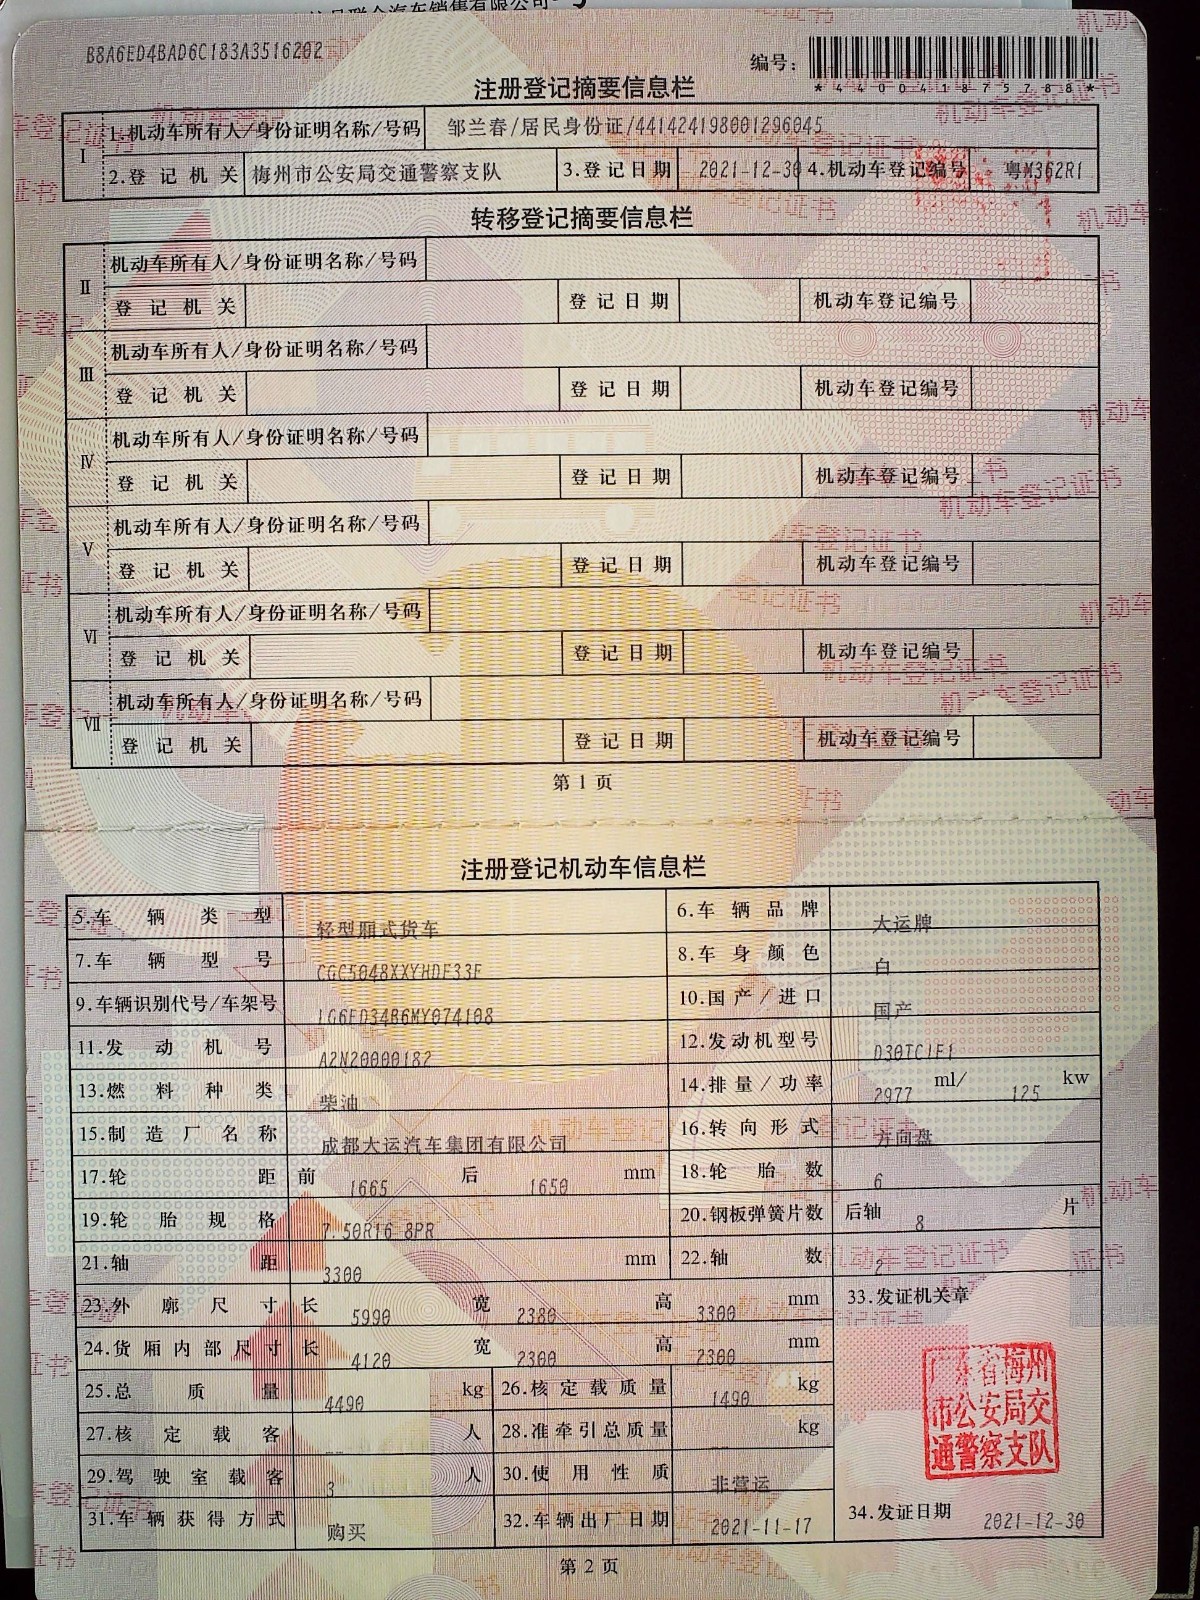 B8A6ED4BAD6C183A3516202
编号：
*440041875788*
注册登记摘要信息栏
Ⅰ 1.机动车所有人/身份证明名称/号码 邹兰春/居民身份证/441424198001296045
2.登记机关 梅州市公安局交通警察支队 3.登记日期 2021-12-30 4.机动车登记编号 粤M362R1
转移登记摘要信息栏
Ⅱ 机动车所有人/身份证明名称/号码
登记机关 登记日期 机动车登记编号
Ⅲ 机动车所有人/身份证明名称/号码
登记机关 登记日期 机动车登记编号
Ⅳ 机动车所有人/身份证明名称/号码
登记机关 登记日期 机动车登记编号
Ⅴ 机动车所有人/身份证明名称/号码
登记机关 登记日期 机动车登记编号
Ⅵ 机动车所有人/身份证明名称/号码
登记机关 登记日期 机动车登记编号
Ⅶ 机动车所有人/身份证明名称/号码
登记机关 登记日期 机动车登记编号
第1页
注册登记机动车信息栏
5.车辆类型 轻型厢式货车 6.车辆品牌 大运牌
7.车辆型号 CGC5048XXYHDF33F 8.车身颜色 白
9.车辆识别代号/车架号 LG6ED34B6MY074108 10.国产/进口 国产
11.发动机号 A2N20000182 12.发动机型号 D30TCIF1
13.燃料种类 柴油 14.排量/功率 2977 ml/ 125 kw
15.制造厂名称 成都大运汽车集团有限公司 16.转向形式 方向盘
17.轮距 前 1665 后 1650 mm 18.轮胎数 6
19.轮胎规格 7.50R16 8PR 20.钢板弹簧片数 后轴 8 片
21.轴距 3300 mm 22.轴数 2
23.外廓尺寸 长 5990 宽 2380 高 3300 mm 33.发证机关章
24.货厢内部尺寸 长 4120 宽 2300 高 2300 mm
25.总质量 4490 kg 26.核定载质量 1490 kg
27.核定载客 -- 人 28.准牵引总质量 -- kg
29.驾驶室载客 3 人 30.使用性质 非营运
31.车辆获得方式 购买 32.车辆出厂日期 2021-11-17 34.发证日期 2021-12-30
广东省梅州
市公安局交
通警察支队
第2页